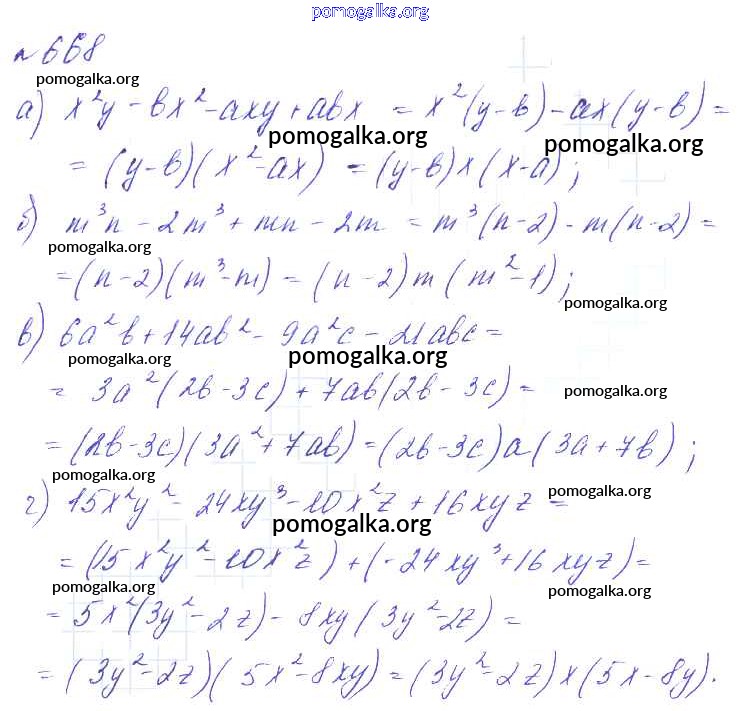 pomogalka.org
№ 668
pomogalka.org
а) x²y - вx² - axy + aвx = x²(y-в) - ax(y-в) =
pomogalka.org pomogalka.org
= (y-в)(x²-ax) = (y-в)x(x-a);
б) m³n - 2m³ + mn - 2m = m³(n-2) - m(n-2) =
pomogalka.org
= (n-2)(m³-m) = (n-2)m(m²-1);
pomogalka.org
в) 6a²b + 14ab² - 9a²c - 21abc =
pomogalka.org pomogalka.org
= 3a²(2b-3c) + 7ab(2b-3c) =
pomogalka.org
= (2b-3c)(3a²+7ab) = (2b-3c)a(3a+7b);
pomogalka.org
г) 15x²y² - 24xy³ - 10x²z + 16xyz =
pomogalka.org
pomogalka.org
= (15x²y² - 10x²z) + (-24xy³ + 16xyz) =
pomogalka.org pomogalka.org
= 5x²(3y²-2z) - 8xy(3y²-2z) =
= (3y²-2z)(5x²-8xy) = (3y²-2z)x(5x-8y).